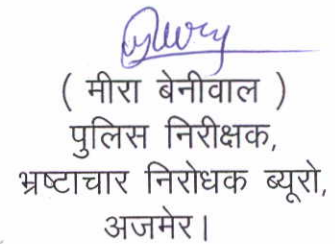 ( मीरा बेनीवाल )
पुलिस निरीक्षक,
भ्रष्टाचार निरोधक ब्यूरो,
अजमेर।